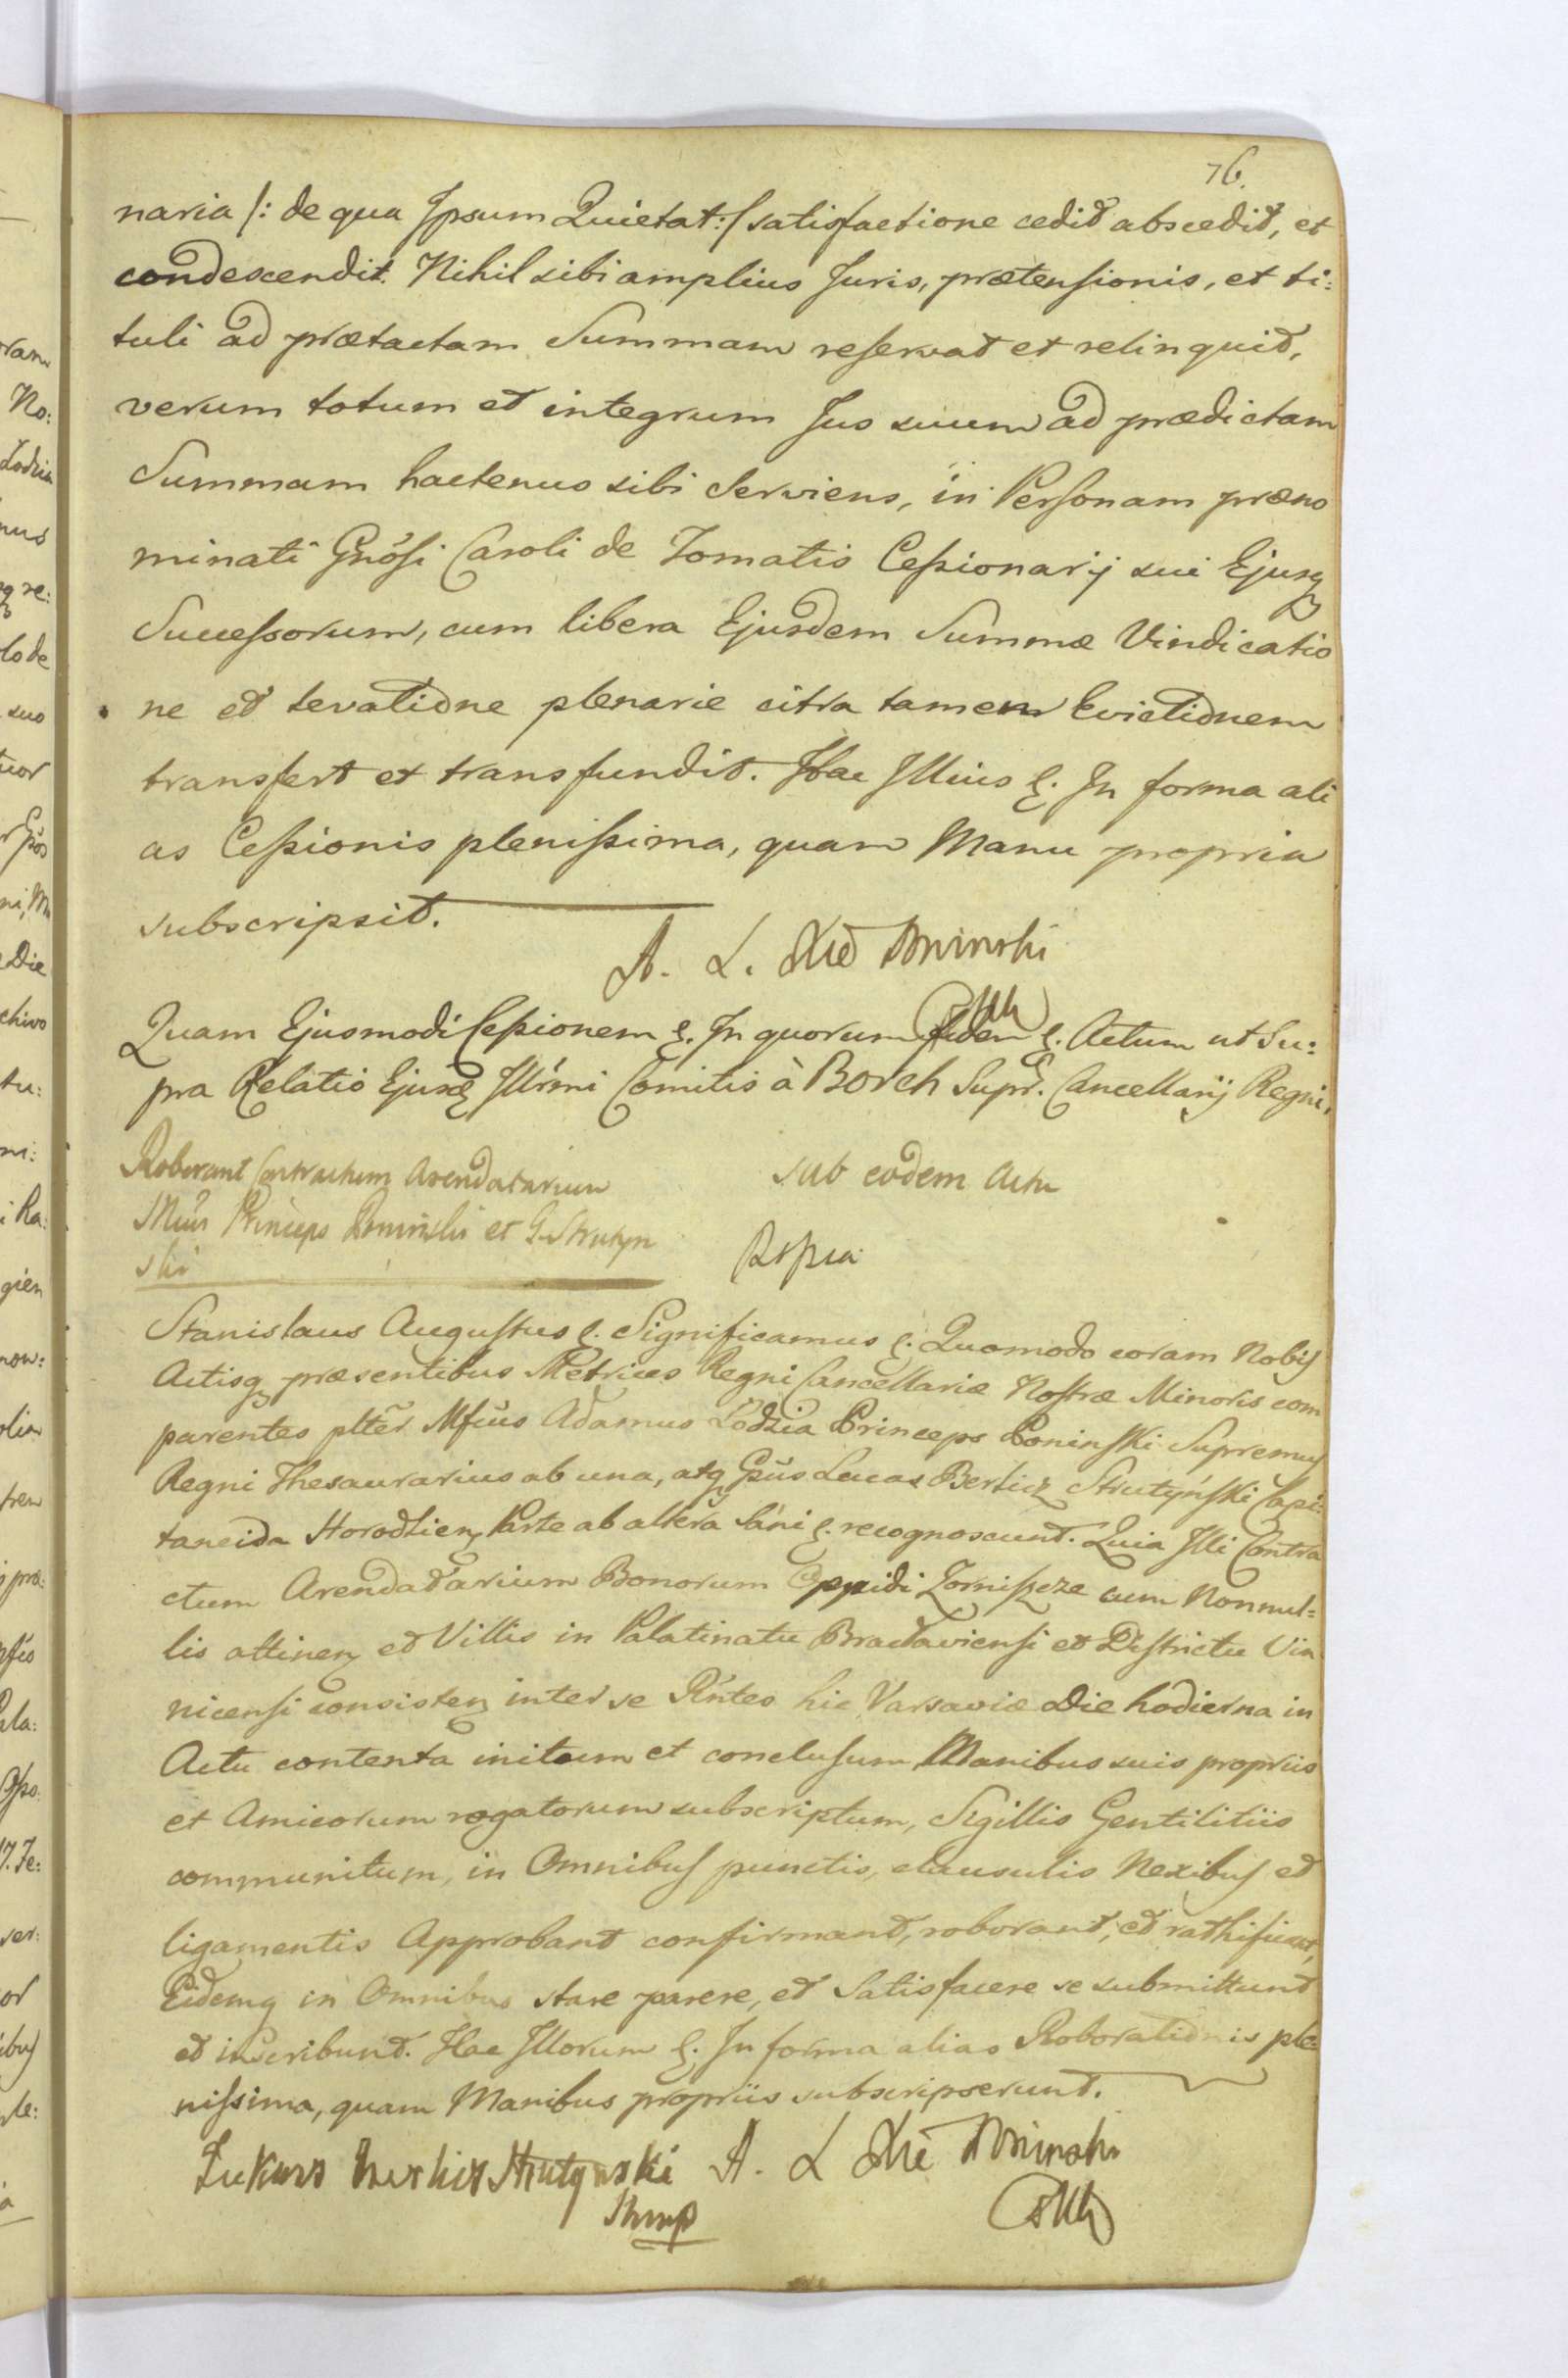 76.
naria /: de qua Ipsum Quietat :/ satisfactione cedit abscedit, et
condescendit. Nihil sibi amplius Juris, prætensionis, et ti:
tuli ad prætactam Summam reservat et relinquit,
verum totum et integrum Jus suum ad prædictam
Summam hactenus sibi serviens, in Personam præno
minati Gnósi Caroli de Tomatis Cessionarij sui Ejusq
Successorum, cum libera Ejusdem Summæ Vindicatio
ne et levatione plenarie citra tamen Evictionem
transfert et transfundit. Hac Illius &. In forma ali
as Cessionis plenissima, quam Manu propria
subscripsit.
A. Ł. Xże Poninski
Quam Ejusmodi Cessionem &. In quorum fidem &. Actum ut Su:
pra Relatio Ejusd Illrmi Comitis à Borch Supr. Cancellarij Regni.
Roborant Contractum Arendatarium
Princeps Poninski et G. Strutyn
ski
sub eodem Actu
Stanislaus Augustus &. Significamus &. Quomodo coram Nobis
Actisq præsentibus Metrices Regni Cancellariæ Nostræ Minoris com
parentes plter Mfcus Adamus Łodzia Princeps Poninski Supremus
Regni Thesaurarius ab una, atq Gsus Lucas Berlicz Strutyński Capi:
taneida Horodlien Parte ab altera Sani &. recognoscunt. Quia Illi Contra
ctum Arendatarium Bonorum Oppidi Zorniszcze cum Nonnul=
lis attinen et Villis in Palatinatu Braclaviensi et Districtu Vin
nicensi consisten inter se Rntes hic Varsaviæ Die hodierna in
Actu contenta initum et conclusum Manibus suis propriis
et Amicorum rogatorum subscriptum, Sigillis Gentilitiis
communitum, in Omnibus punctis, clausulis Nexibus et
ligamentis Approbant confirmant, roborant, et rathificant,
Eidemq in Omnibus stare parere, et Satisfacere se submittunt
et inscribunt. Hac Illorum &. In forma alias Roborationis ple=
nissima, quam Manibus propriis subscripserunt.
Łukasz Berlicz Strutynski A. Ł Xże Poninski